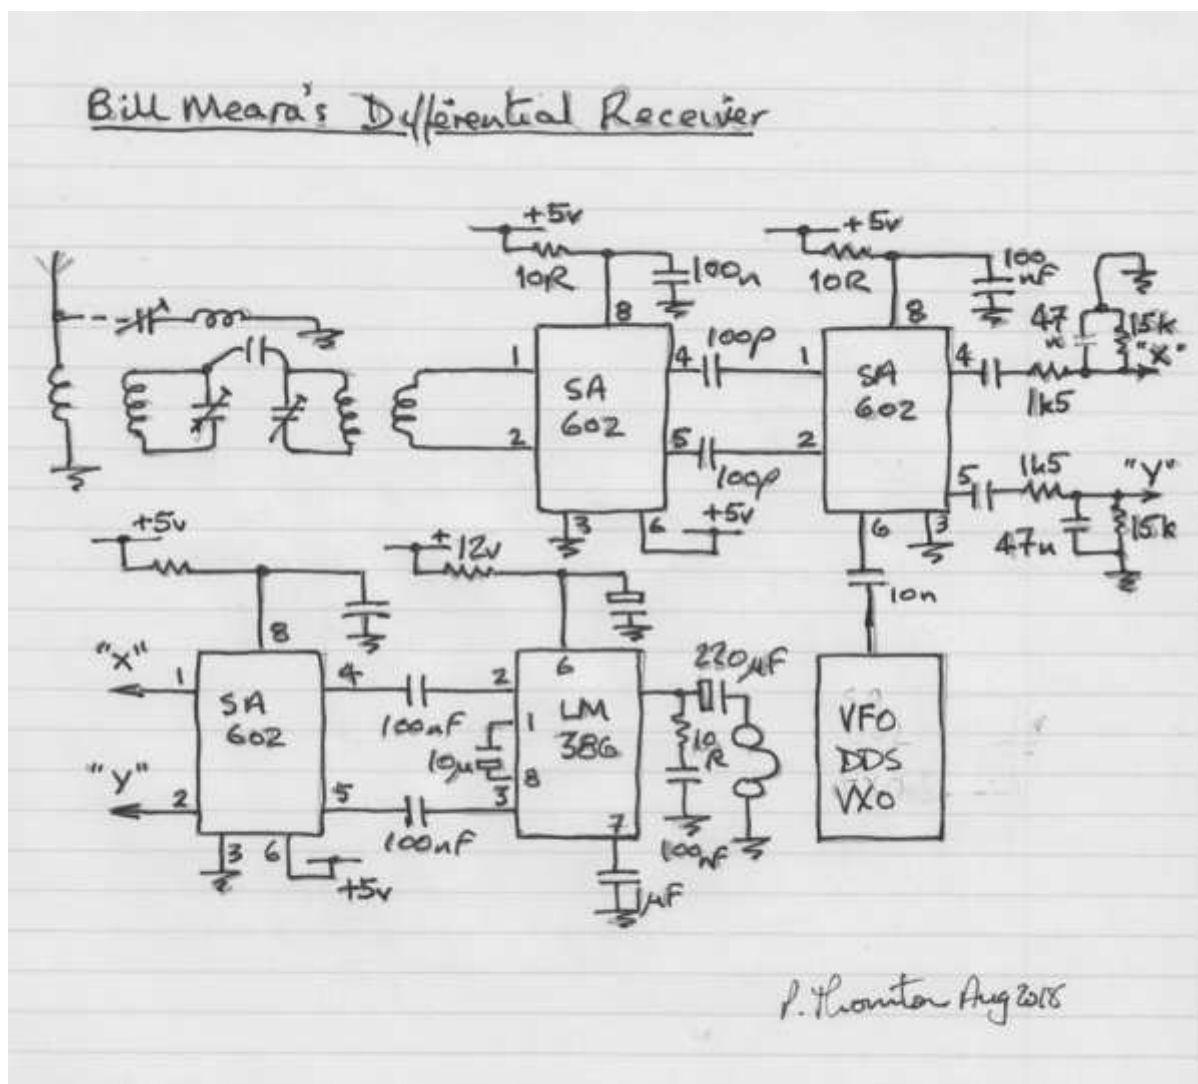 Bill Meara's Differential Receiver
+5v
10R
100n
8
1
2
SA
602
4
5
3
6
+5v
100p
100p
+5v
10R
100
nF
8
1
2
SA
602
4
5
6
3
1k5
47
15k
"X"
1k5
"Y"
47n
15k
10n
VFO
DDS
VXO
+5v
8
"X"
1
"Y"
2
SA
602
4
5
3
6
+5v
100nF
100nF
+ 12v
6
2
1
10µ
8
3
LM
386
7
µF
220µF
10
R
100nF
P. Thornton Aug 2018